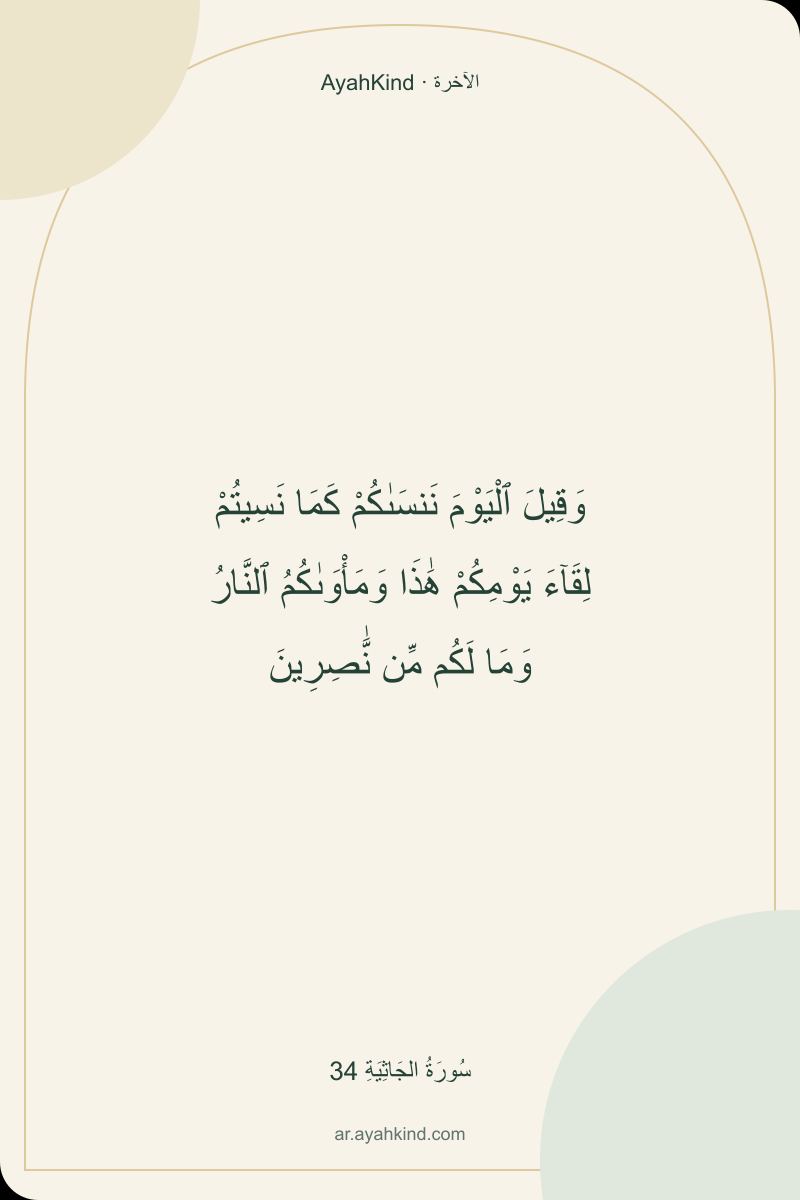 AyahKind · الآخرة
وَقِيلَ ٱلْيَوْمَ نَنسَىٰكُمْ كَمَا نَسِيتُمْ
لِقَآءَ يَوْمِكُمْ هَٰذَا وَمَأْوَىٰكُمُ ٱلنَّارُ
وَمَا لَكُم مِّن نَّٰصِرِينَ
سُورَةُ الجَاثِيَةِ 34
ar.ayahkind.com